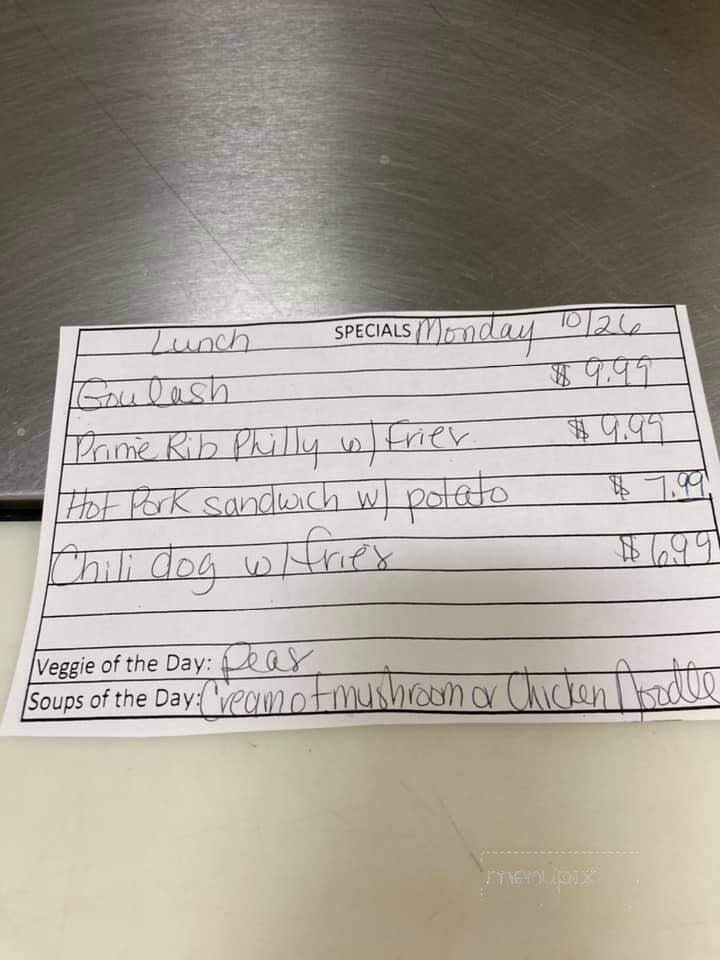 Lunch SPECIALS Monday 10/26
Goulash $ 9.99
Prime Rib Philly w/ fries $ 9.99
Hot Pork sandwich w/ potato $ 7.99
Chili dog w/ fries $ 6.99
Veggie of the Day: Peas
Soups of the Day: Cream of mushroom or Chicken Noodle
menupix